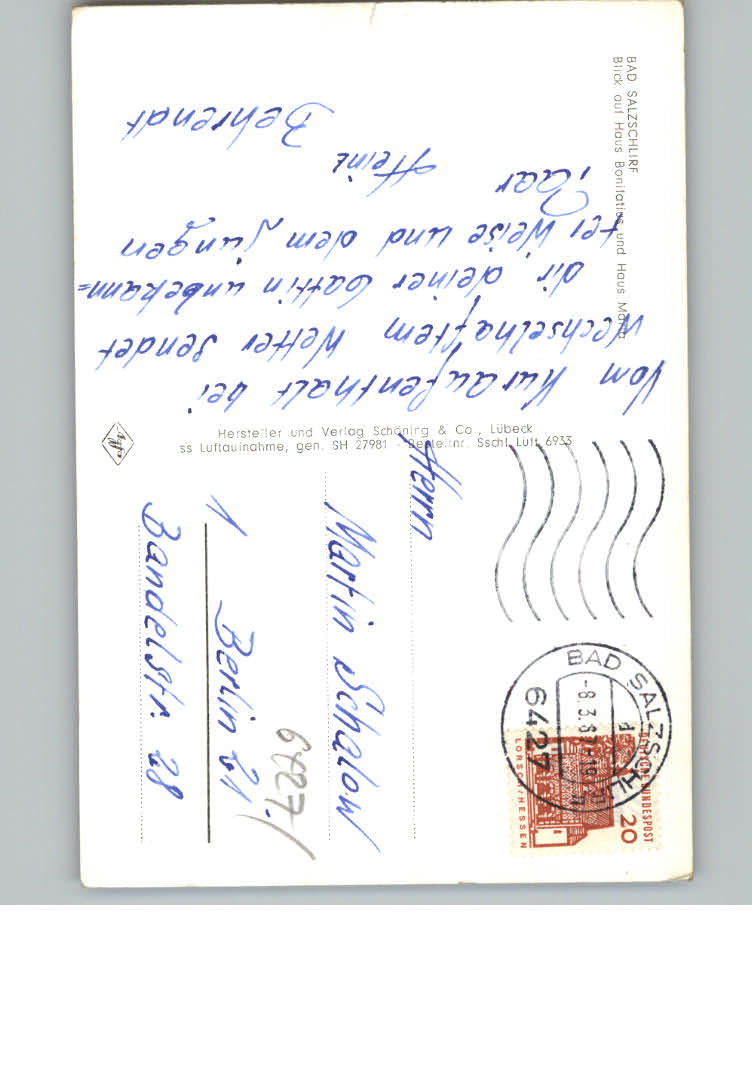 BAD SALZSCHLIRF
Blick auf Haus Bonifatius und Haus Maria
Vom Kuraufenthalt bei
wechselhaftem Wetter sendet
dir deiner Gattin unbekann=
ter Weise und dem jungen
Paar
Heinz
Behrendt
Hersteller und Verlag Schöning & Co., Lübeck
ss Luftaufnahme, gen. SH 27981 - Bestellnr. Sschl Luft 6933
Agfa
Herrn
Martin Schalow
1 Berlin 21.
Bandelstr. 28
6427/
BAD SALZSCHLIRF
-8.3.67-19
6427
DEUTSCHE BUNDESPOST
20
LORSCH/HESSEN